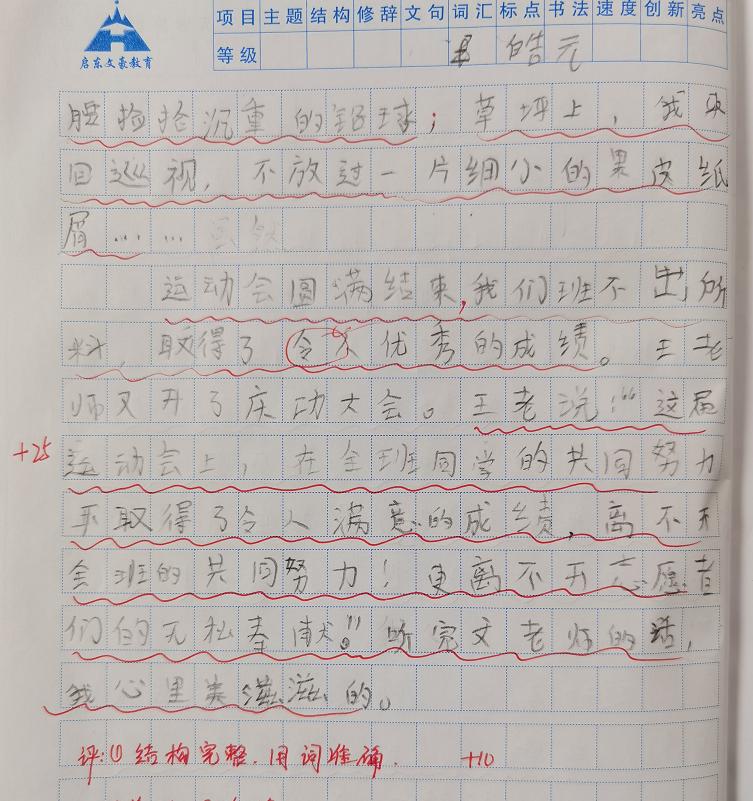 启东文豪教育
项目 主题 结构 修辞 文句 词汇 标点 书法 速度 创新 亮点
等级 皓元
腰捡拾沉重的铅球；草坪上，我来
回巡视，不放过一片细小的果皮纸
屑……
运动会圆满结束，我们班不出所
料，取得了令人优秀的成绩。王老
师又开了庆功大会。王老说：“这届
+25
运动会上，在全班同学的共同努力
取得了令人满意的成绩，离不开
全班的共同努力！更离不开志愿者
们的无私奉献”。听完文老师的话，
我心里美滋滋的。
评：①结构完整，用词准确. +10